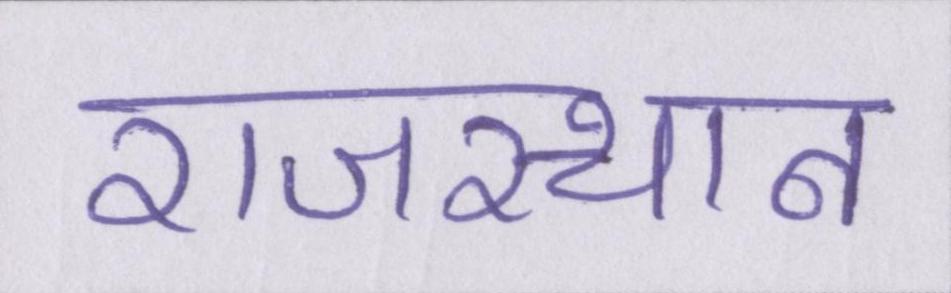 राजस्थान